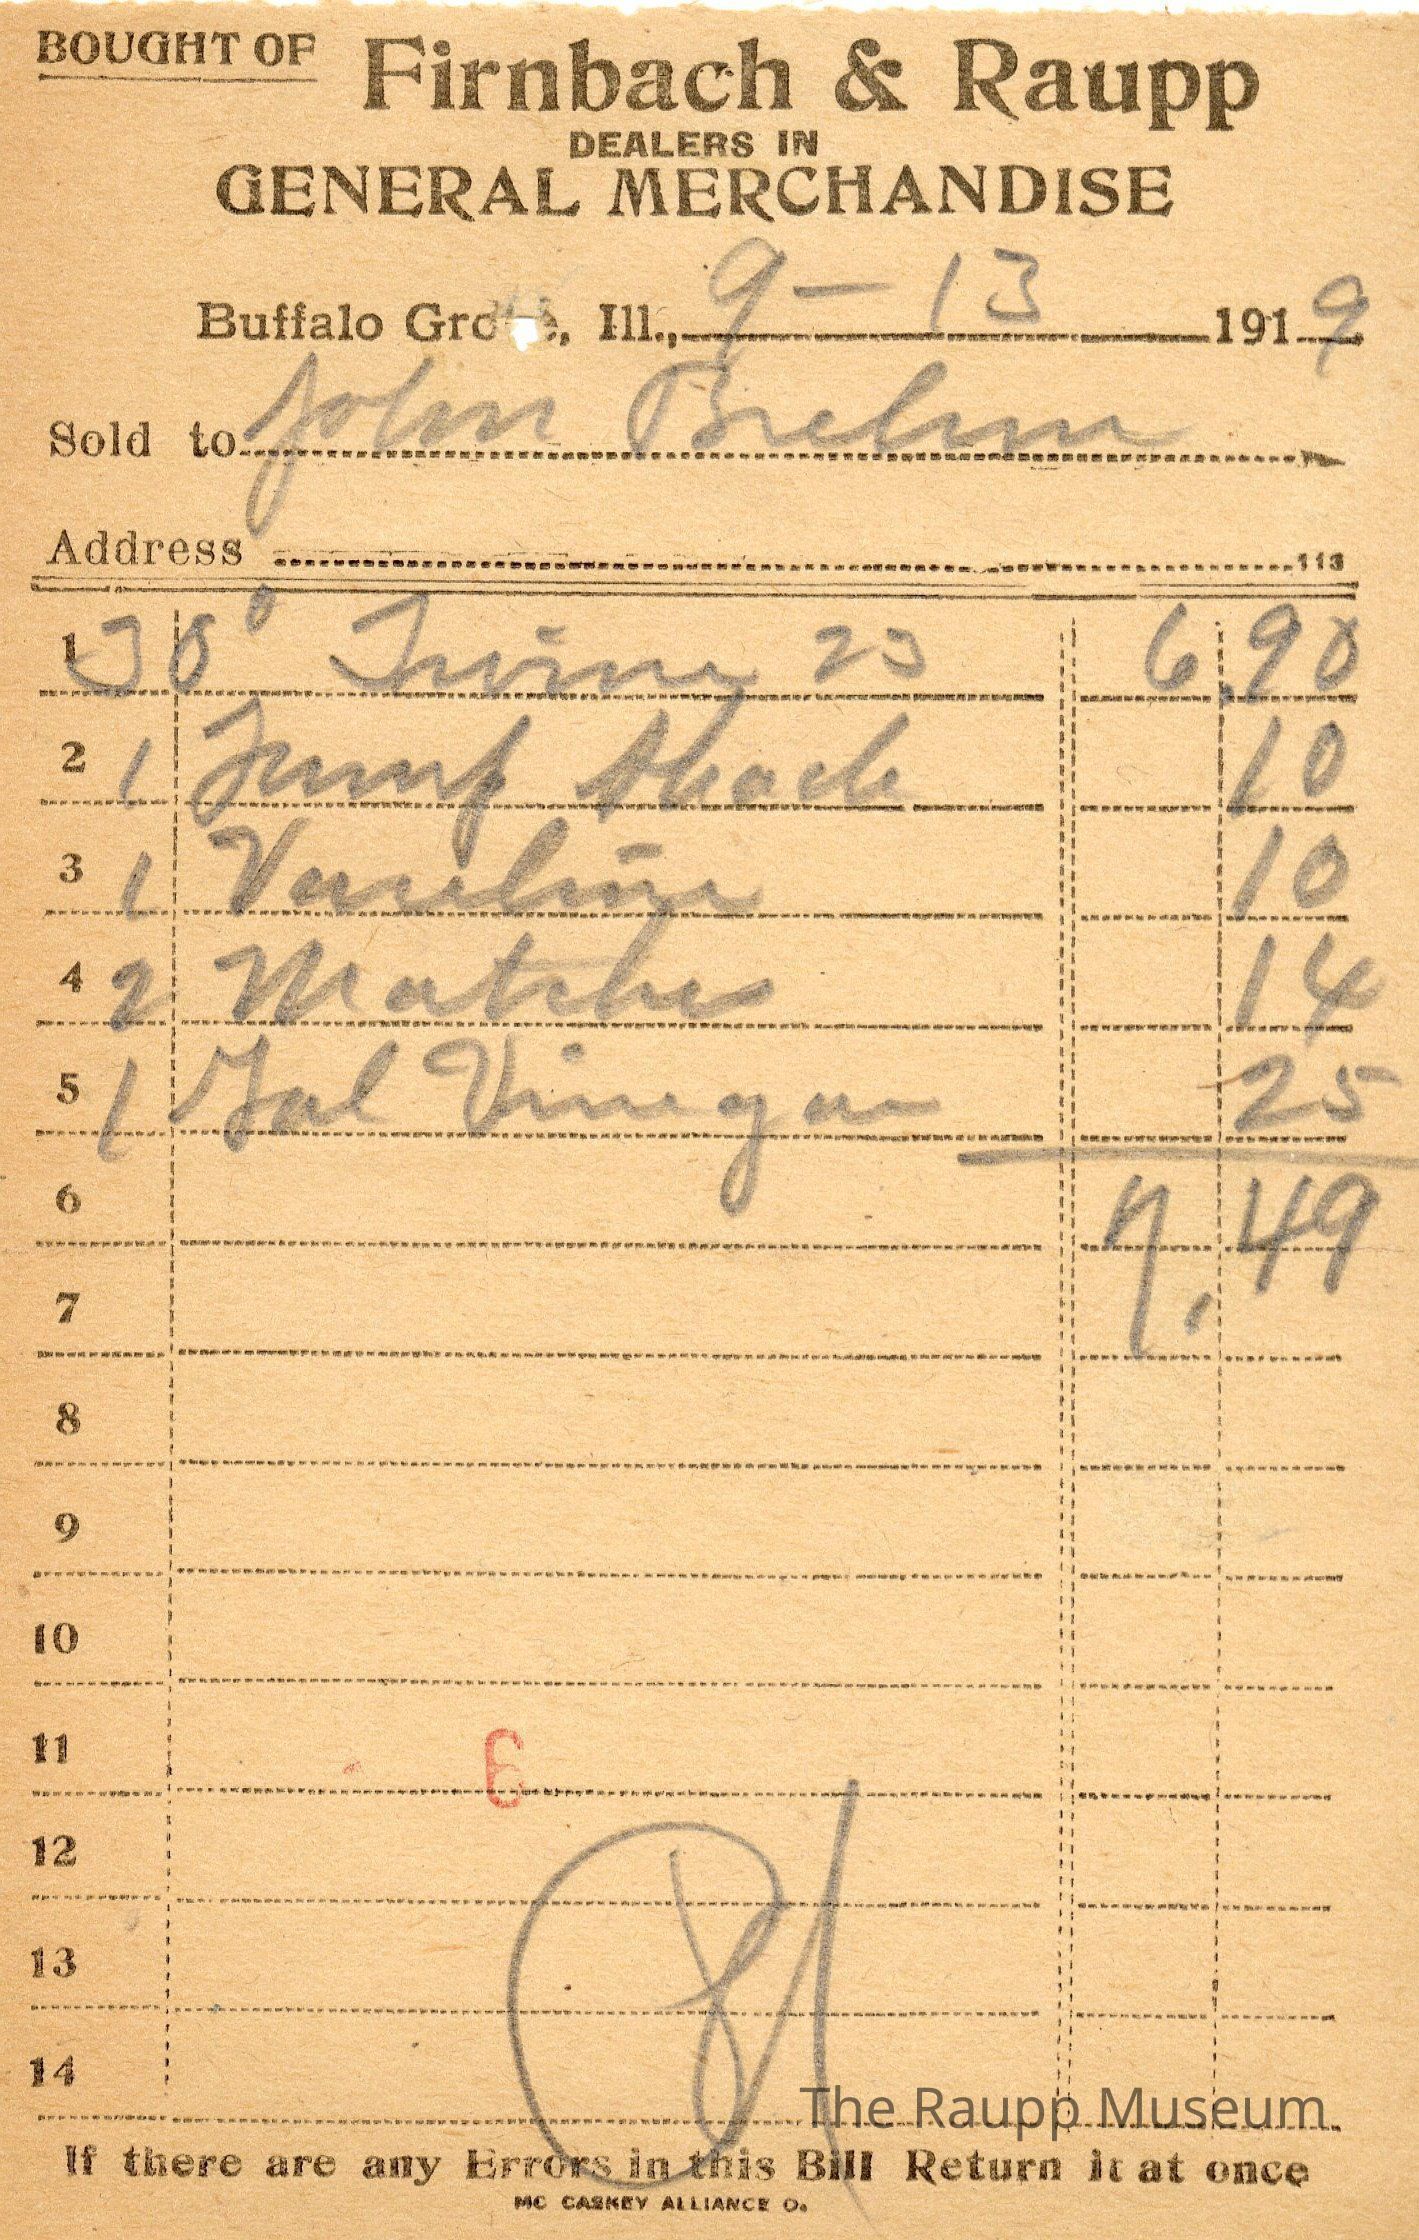 BOUGHT OF Firnbach & Raupp
DEALERS IN
GENERAL MERCHANDISE
Buffalo Grove, Ill., 9-13 1919
Sold to John Brehm
Address 113
1 30# Twine 23 6.90
2 1 10
3 1 Vaseline 10
4 2 Matches 14
5 1 Gal Vinegar 25
6 7.49
7
8
9
10
11 6
12
13
14
The Raupp Museum
If there are any Errors in this Bill Return it at once
MC CASKEY ALLIANCE O.